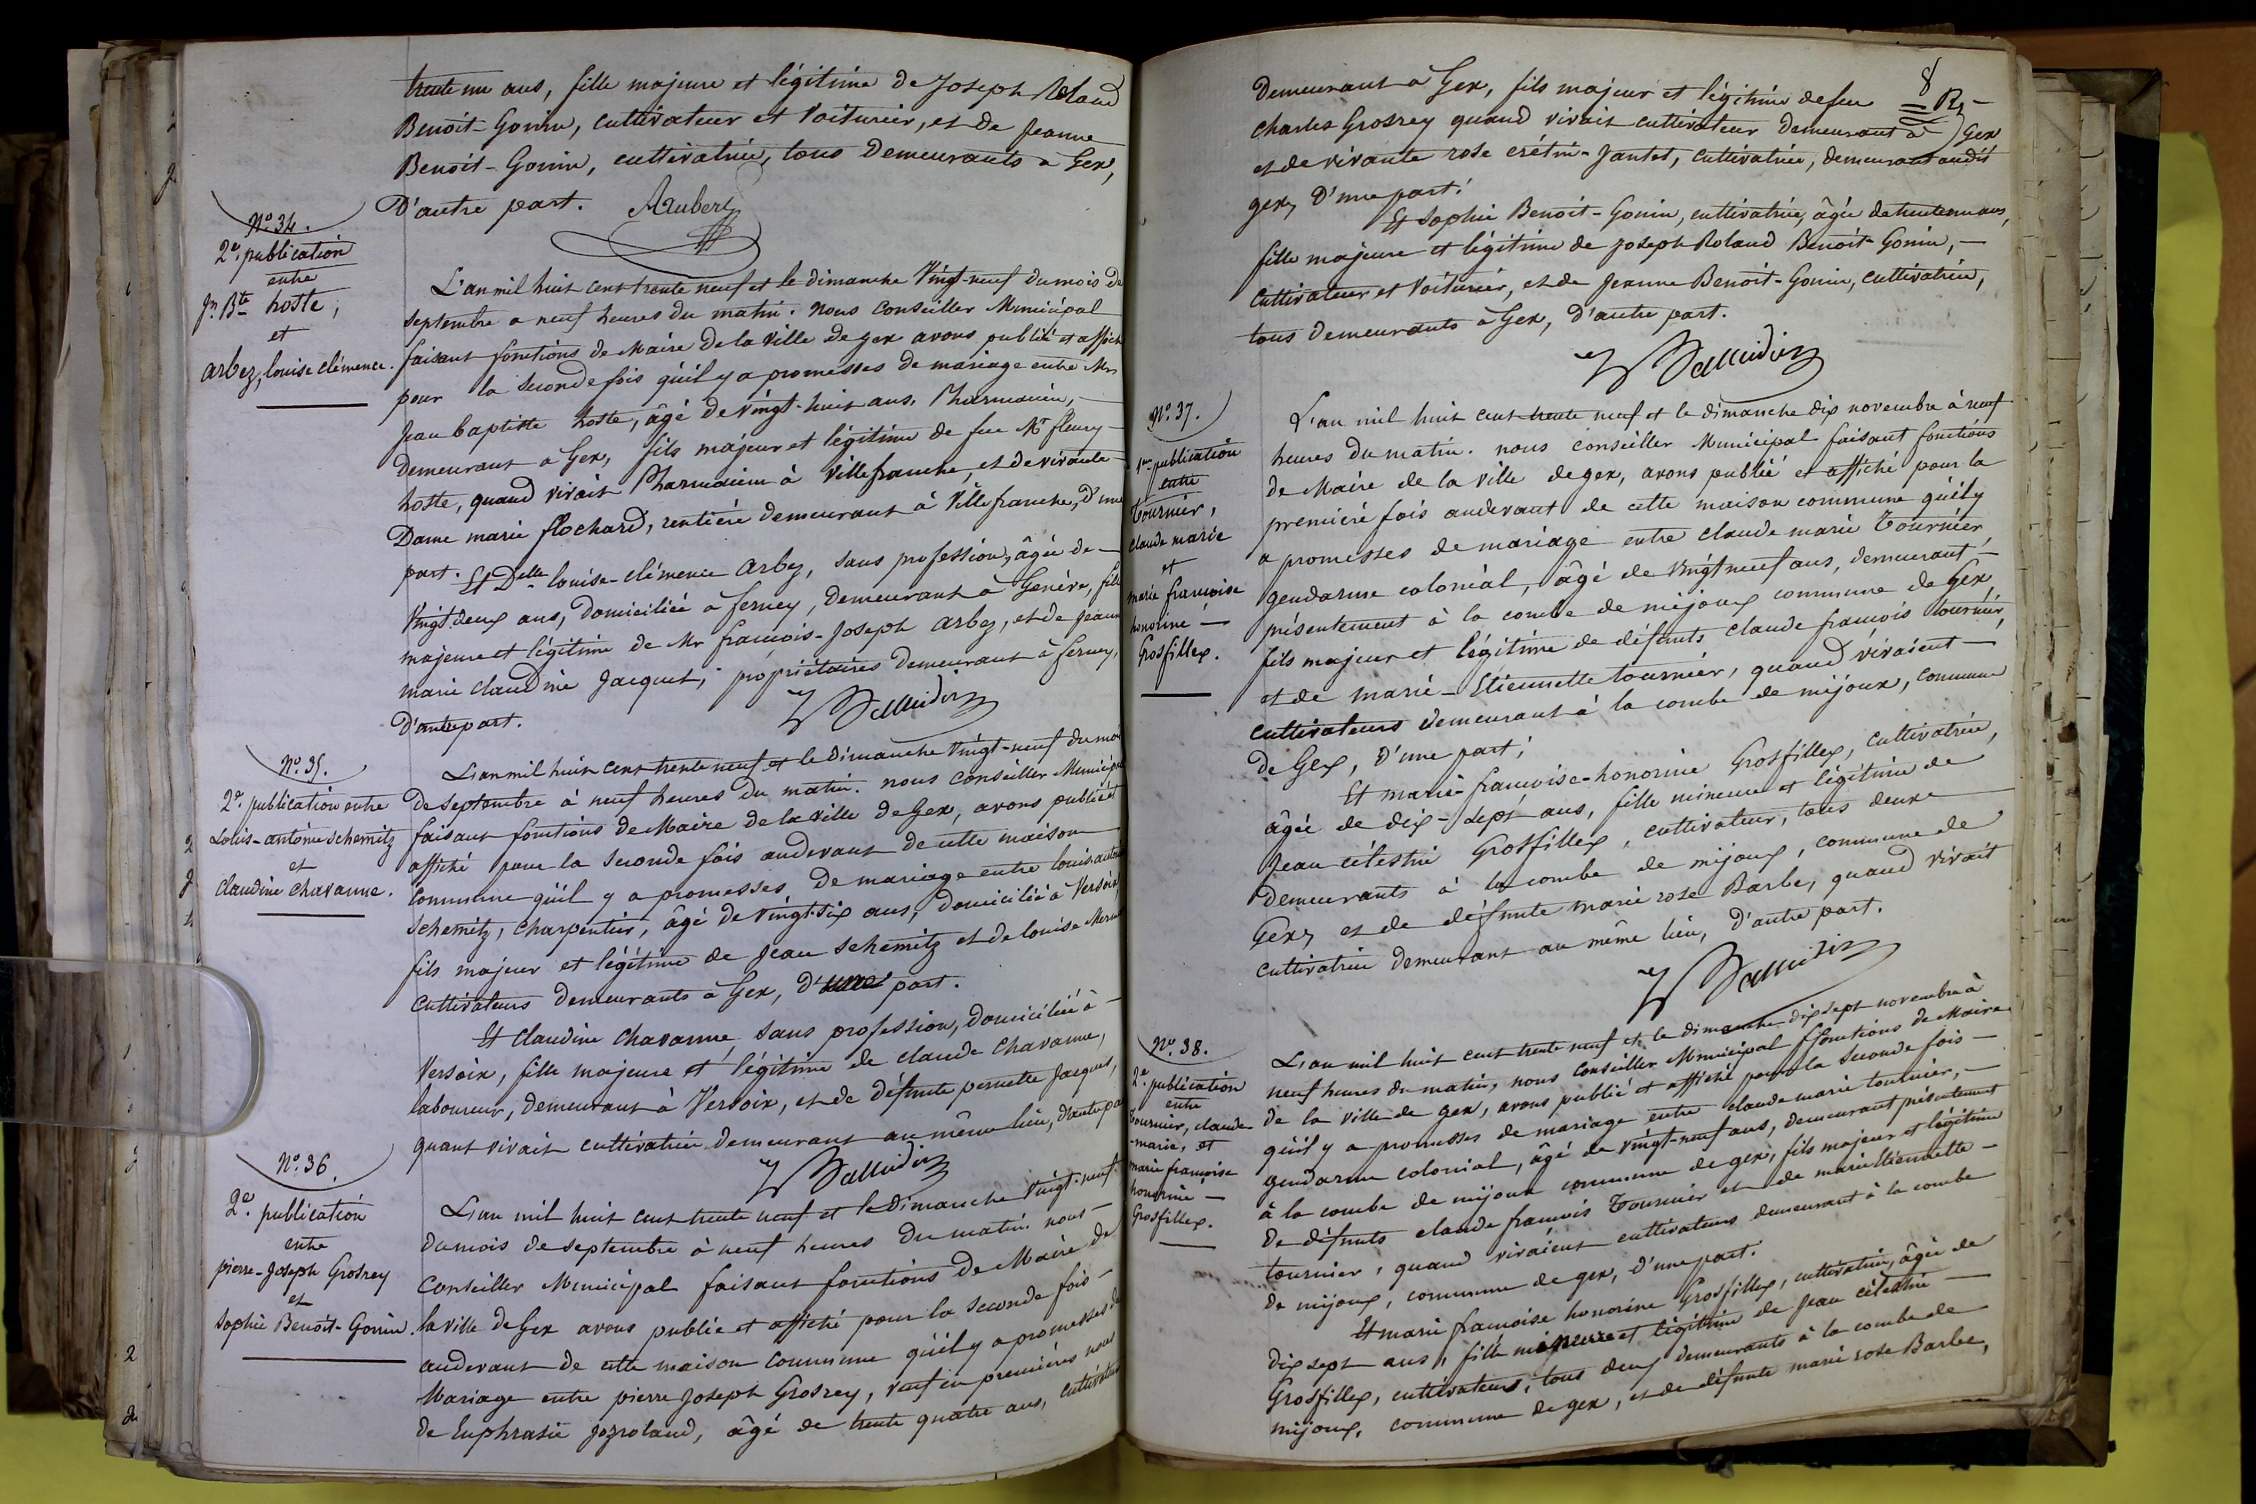 trente un ans, fille majeure et légitime de Joseph Roland
Benoit-Gonin, cultivateur et Voiturier, et de Jeanne
Benoit-Gonin, cultivatrice, tous Demeurants à Gex,
D'autre part. Aubert
N°. 34.
2e. publication
entre
Jn. Bte hoste,
et
arbez, louise clémence.
L'an mil huit cent trente neuf et le dimanche Vingt-neuf du mois de
septembre a neuf heures du matin. nous conseiller Municipal
faisant fonctions de Maire de la Ville de gex avons publié et affiché
pour la seconde fois qu'il y a promesses de mariage entre Mr
Jean baptiste hoste, âgé de vingt-huit ans, Pharmacien,
Demeurant a Gex, fils majeur et légitime de feu Mr fleury
hoste, quand vivait Pharmacien à Villefranche, et de vivante
Dame marie flochard, rentière demeurant à Villefranche, d'une
part. Et Delle louise-clémence arbez, sans profession, âgée de
Vingt-deux ans, Domiciliée à ferney, demeurant à Genève, fille
majeure et légitime de Mr françois-Joseph arbez, et de Jeanne
marie claudine Jacquet, propriétaires demeurant à ferney,
D'autre part.
N°. 35.
2e. publication entre
Louis-antoine schemitz
et
claudine chavanne.
L'an mil huit cent trente neuf et le Dimanche Vingt-neuf du mois
De septembre à neuf heures du matin. nous conseiller Municipal
faisant fonctions de Maire de la ville de Gex, avons publié et
affiché pour la seconde fois audevant de cette maison
commune qu'il y a promesses De mariage entre louis antoine
schemitz, charpentier, âgé de vingt-six ans, domicilié à Versoix,
fils majeur et légitime de Jean schemitz et de louise
cultivateurs Demeurants à Gex, d'une part.
Et claudine chavanne, sans profession, domiciliée à
Versoix, fille majeure et légitime de claude chavanne,
laboureur, demeurant à Versoix, et de défunte pernette Jacques,
quant vivait cultivatrice demeurant au même lieu, d'autre part
N°. 36.
2e. publication
entre
pierre-Joseph Grosrey
et
sophie Benoit-Gonin.
L'an mil huit cent trente neuf et le Dimanche Vingt-neuf
du mois de septembre à neuf heures du matin. nous
conseiller Municipal faisant fonctions de Maire de
la ville de Gex avons publié et affiché pour la seconde fois
audevant de cette maison commune qu'il y a promesses de
Mariage entre pierre Joseph Grosrey, veuf en premières noces
de Euphrasie Jozroland, âgé de trente quatre ans, cultivateur
8
Demeurant à Gex, fils majeur et légitime de feu
charles Grosrey quand vivait cultivateur demeurant à Gex
et de vivante rose crétin-Jantet, cultivatrice, demeurant audit
gex, D'une part.
Et Sophie Benoit-Gonin, cultivatrice, âgée de trente un ans,
fille majeure et légitime de Joseph Roland Benoit-Gonin,
cultivateur et Voiturier, et de Jeanne Benoit-Gonin, cultivatrice,
tous demeurants à Gex, d'autre part.
N°. 37.
1ère publication
entre
Tournier,
claude marie
et
marie françoise
honorine
Grosfillex.
L'an mil huit cent trente neuf et le dimanche dix novembre à neuf
heures du matin. nous conseiller Municipal faisant fonctions
de Maire de la ville de gex, avons publié et affiché pour la
première fois audevant de cette maison commune qu'il y
a promesses de mariage entre claude marie Tournier,
gendarme colonial, âgé de vingt neuf ans, demeurant
présentement à la combe de mijoux commune de Gex,
fils majeur et légitime de défunts claude françois tournier,
et de marie-Etiennette tournier, quand vivaient
cultivateurs demeurant à la combe de mijoux, commune
de Gex, d'une part;
Et marie-françoise-honorine Grosfillex, cultivatrice,
âgée de dix-sept ans, fille mineure et légitime de
Jean célestin Grosfillex, cultivateur, tous deux
demeurants à la combe de mijoux, commune de
Gex, et de défunte marie rose Barbe, quand vivait
cultivatrice demeurant au même lieu, d'autre part.
N°. 38.
2e. publication
entre
Tournier, claude
-marie, et
marie françoise
honorine
Grosfillex.
L'an mil huit cent trente neuf et le dimanche dix sept novembre à
neuf heures du matin, nous conseiller Municipal ffonctions de Maire
de la ville de gex, avons publié et affiché pour la seconde fois
qu'il y a promesses de mariage entre claude marie tournier,
gendarme colonial, âgé de vingt-neuf ans, demeurant présentement
à la combe de mijoux commune de gex, fils majeur et légitime
de défunts claude françois Tournier et de marie Etiennette
tournier, quand vivaient cultivateurs demeurant à la combe
de mijoux, commune de gex, d'une part.
Et marie françoise honorine Grosfillex, cultivatrice, âgée de
dix sept ans, fille mineure et légitime de Jean célestin
Grosfillex, cultivateurs, tous deux demeurants à la combe de
mijoux, commune de gex, et de défunte marie rose Barbe,